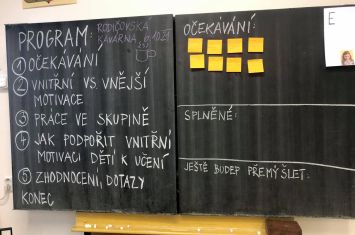 PROGRAM:
RODIČOVSKÁ
KAVÁRNA 6.10.21
① OČEKÁVÁNÍ
② VNITŘNÍ VS. VNĚJŠÍ
MOTIVACE
③ PRÁCE VE SKUPINĚ
④ JAK PODPOŘIT VNITŘNÍ
MOTIVACI DĚTÍ K UČENÍ
⑤ ZHODNOCENÍ, DOTAZY
KONEC
OČEKÁVÁNÍ:
SPLNĚNÉ:
JEŠTĚ BUDEP PŘEMÝŠLET:
E